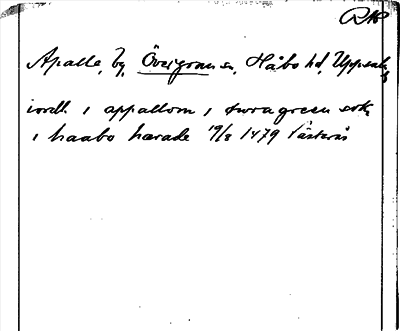 RAP
Apalle, by, Övergrans sn, Håbo hd, Uppsala
iordh i appallom i gran sokn
i haabo hærade 19/3 1479 Västerås